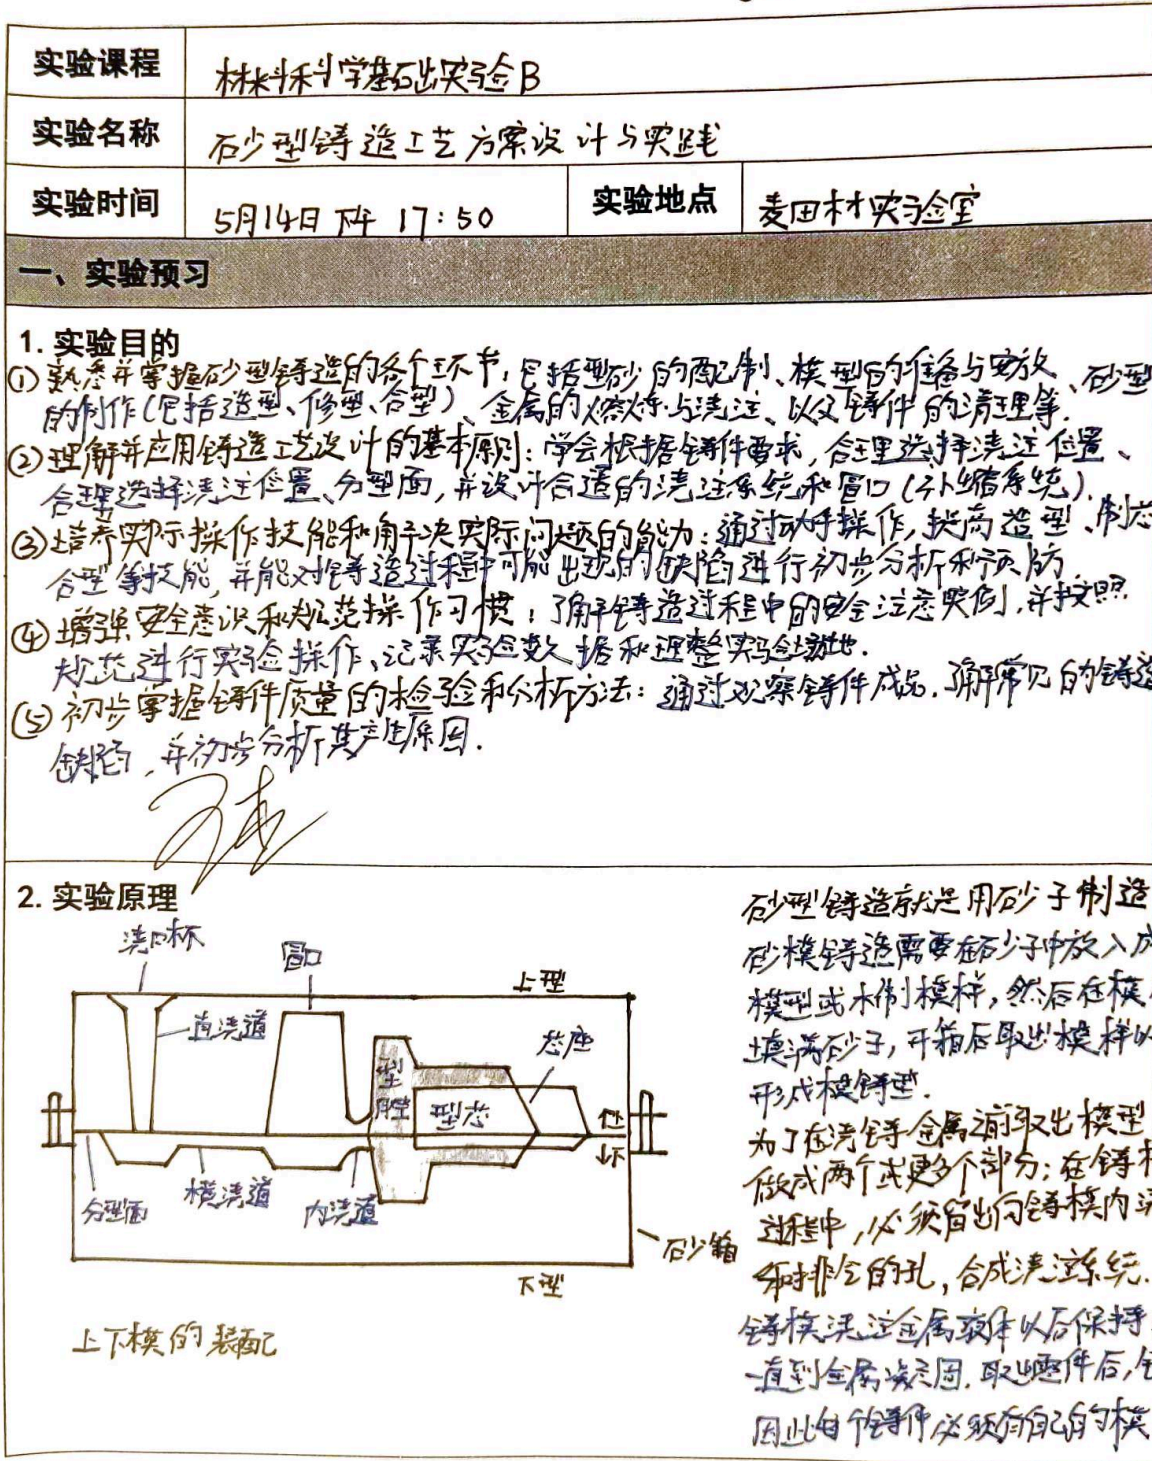 实验课程 材料科学基础实验B
实验名称 砂型铸造工艺方案设计与实践
实验时间 5月14日 下午 17:50 实验地点 麦田材实验室
一、实验预习
1. 实验目的
① 熟悉并掌握砂型铸造的各个环节,包括型砂的配制、模型的准备与安放、砂型
的制作(包括造型、修型、合型)、金属的熔炼与浇注、以及铸件的清理等.
② 理解并应用铸造工艺设计的基本原则:学会根据铸件要求,合理选择浇注位置、
合理选择浇注位置、分型面,并设计合适的浇注系统和冒口(补缩系统).
③ 培养实际操作技能和解决实际问题的能力:通过动手操作,提高造型、制芯
合型等技能,并能对铸造过程中可能出现的缺陷进行初步分析和预防
④ 增强安全意识和规范操作习惯:了解铸造过程中的安全注意事例,并按照
规范进行实验操作、记录实验数据和理整实验场地.
⑤ 初步掌握铸件质量的检验和分析方法:通过观察铸件成品.了解常见的铸造
缺陷,并初步分析其产生原因.
2. 实验原理
浇口杯
冒口
上型
直浇道
芯座
型腔
型芯
上
下
分型面
横浇道
内浇道
砂箱
下型
上下模的装配
砂型铸造就是用砂子制造
砂模铸造需要在砂子中放入成
模型或木制模样,然后在模
填满砂子,开箱后取出模样以
形成模铸型.
为了在浇铸金属前取出模型
做成两个或更多个部分;在铸
过程中,必须留出向铸模内浇
和排气的孔,合成浇注系统.
铸模浇注金属液体以后保持
一直到金属凝固.取出零件后,
因此每个铸件必须有自己的模